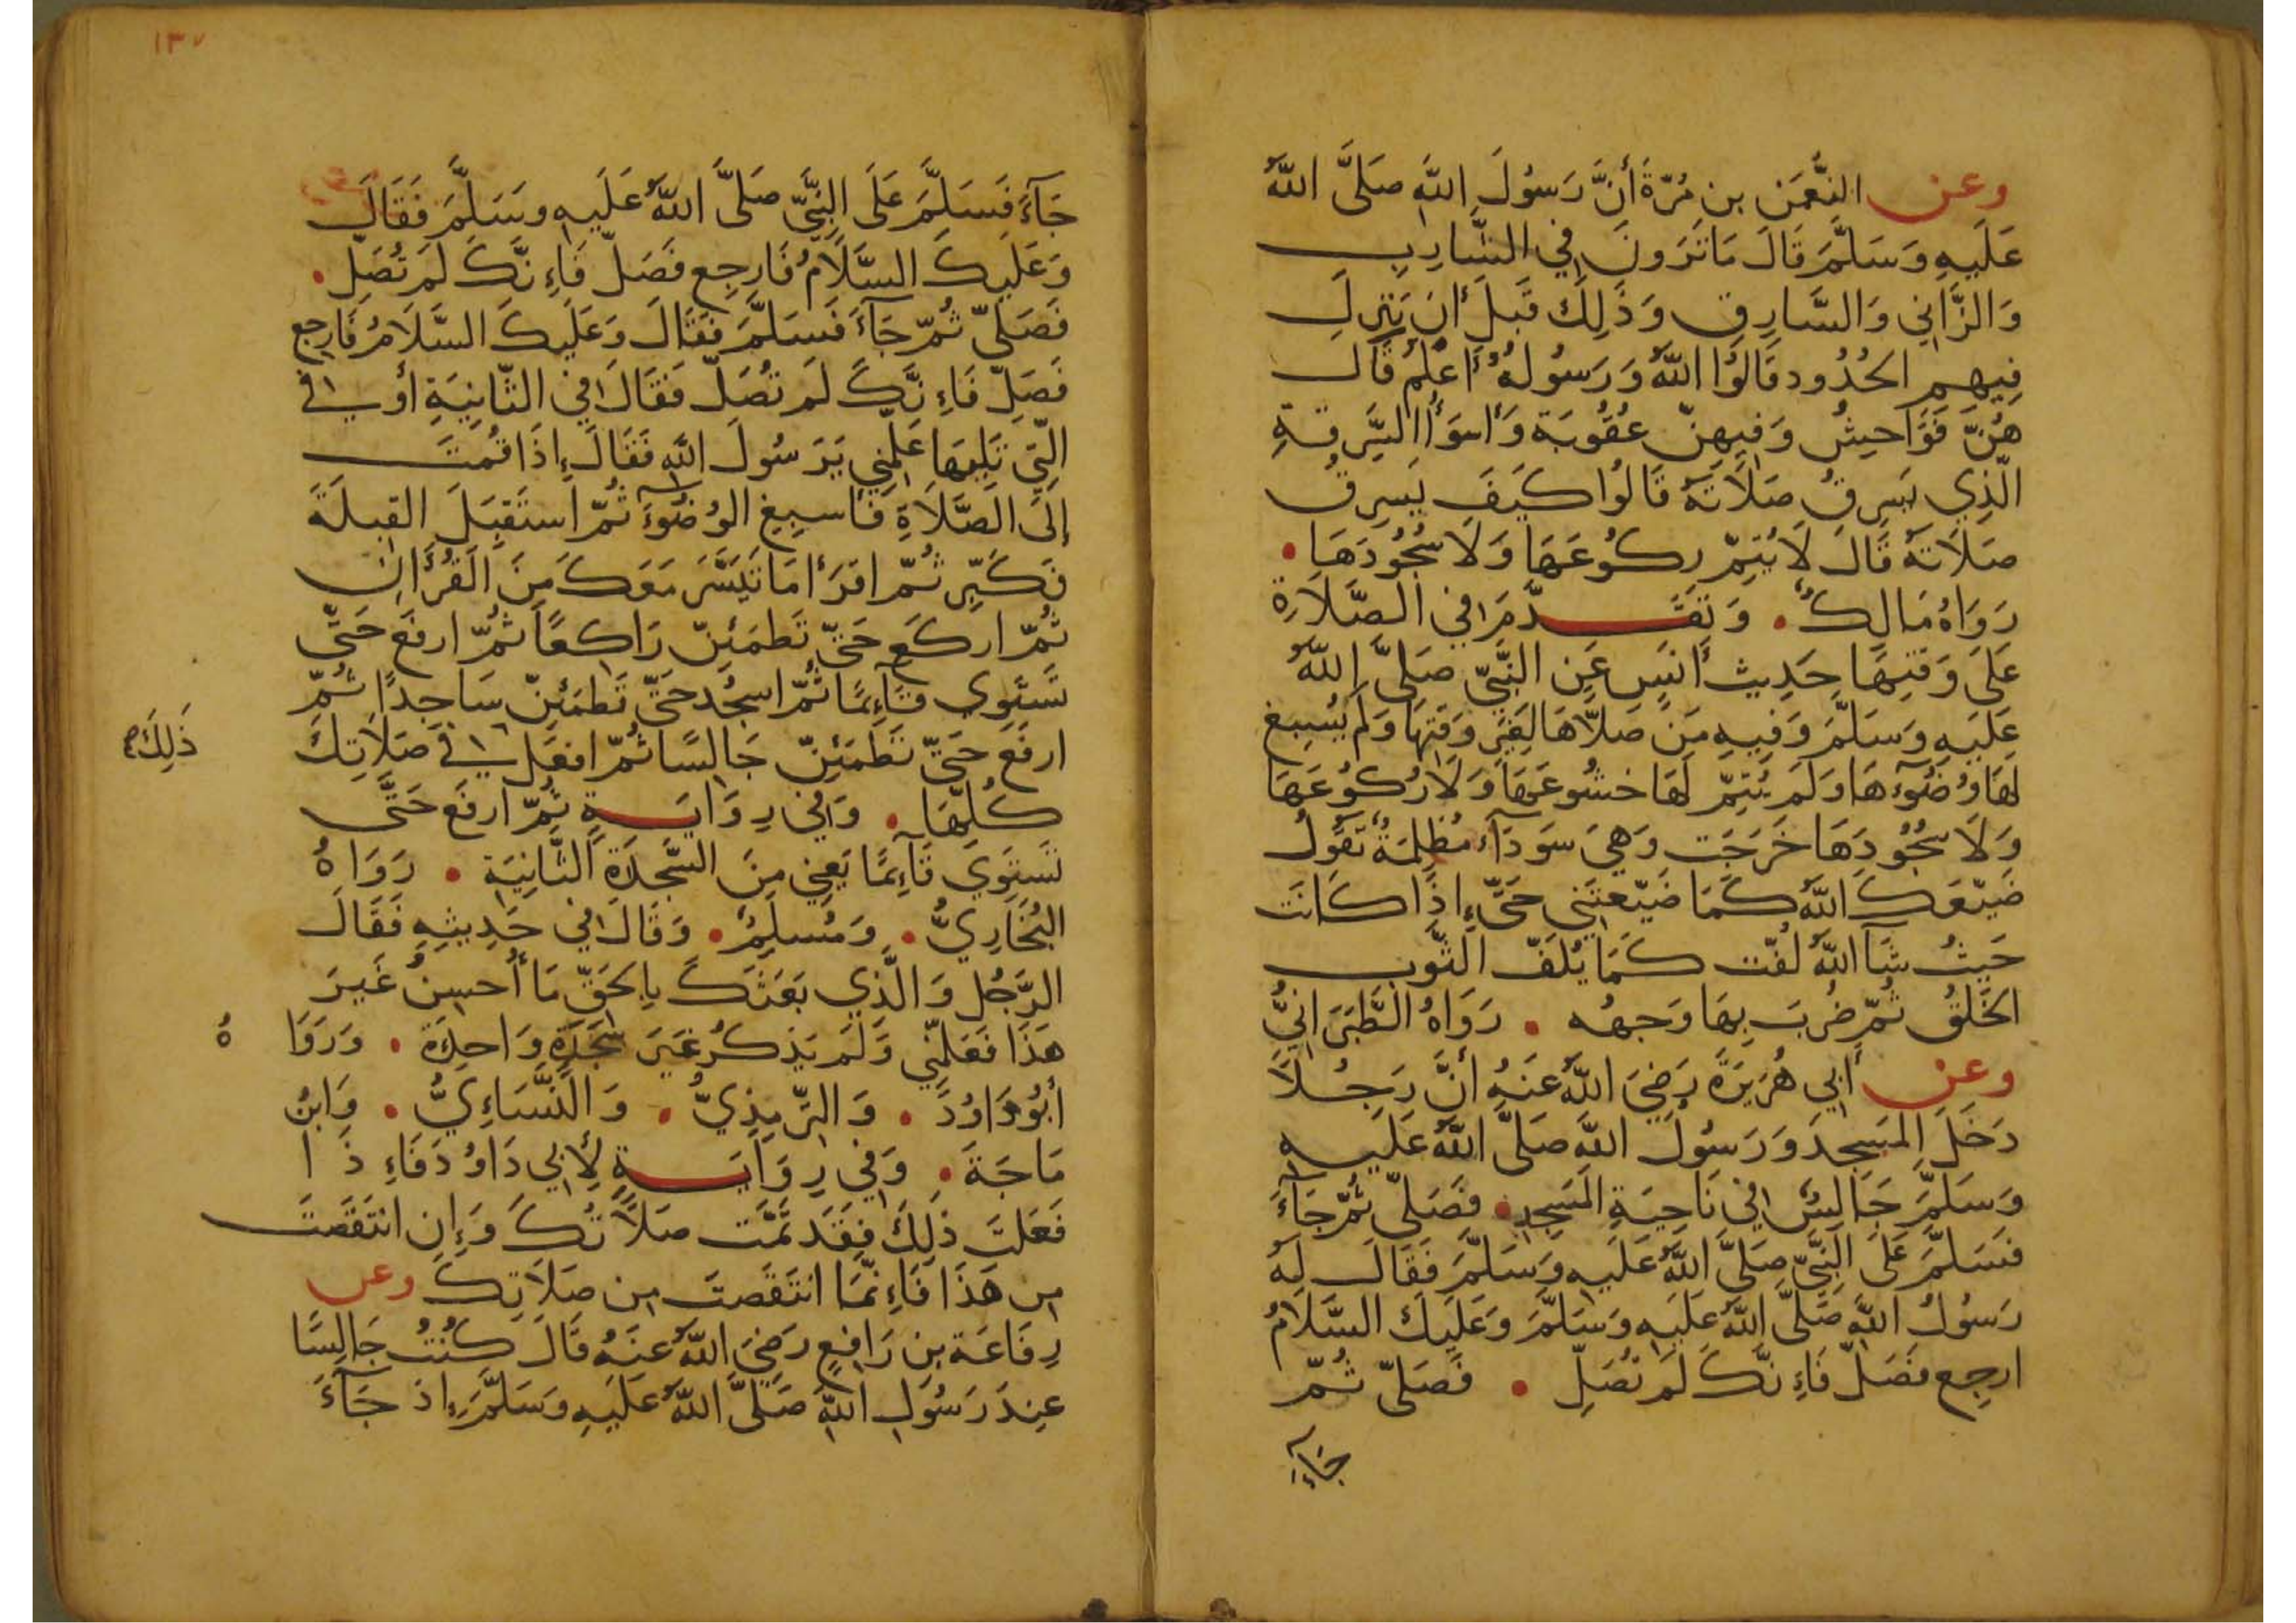 وعن النُّعمَن بن مُرّةَ أنَّ رَسُولَ اللهِ صَلَّى اللهُ
عَلَيهِ وَسَلَّمَ قَالَ مَاتَرَونَ فِي الشَّارِبِ
وَالزَّانِي وَالسَّارِقِ وَذَلِكَ قَبلَ أن يَنزِلَ
فِيهِمِ الحُدُود قَالُوا اللهُ وَرَسُولُهُ أعلَمُ قَالَ
هُنَّ فَوَاحِشُ وَفِيهِنّ عُقُوبَة وَأسوَأُ السَّرِقَةِ
الَّذِي يَسرِقُ صَلَاتَهُ قَالُوا كَيفَ يَسرِقُ
صَلَاتَهُ قَالَ لَا يُتِمّ رِكُوعَهَا وَلَا سُجُودَهَا.
رَوَاهُ مَالِكٌ. وَتَقَدّمَ فِي الصَّلَاةِ
عَلَى وَقتِهَا حَدِيث أنَسٍ عَنِ النَّبِيّ صَلَّى اللهُ
عَلَيهِ وَسَلَّمَ وَفِيهِ مَن صَلَّاهَا لِغَيرِ وَقتِهَا وَلَم يُسبِغ
لَهَا وُضُوءَهَا وَلَم يُتِمّ لَهَا خشُوعَهَا وَلَا رُكُوعَهَا
وَلَا سُجُودَهَا خَرَجَت وَهِيَ سَودَآء مُظلِمَةٌ تَقُولُ
ضَيّعَكَ اللهُ كَمَا ضَيّعتَنِي حَتَّى إذَا كَانَت
حَيثُ شَآ اللهُ لُفّت كَمَا يُلَفّ الثَّوب
الخَلَقُ ثُمّ ضُرِبَ بِهَا وَجهُه . رَوَاهُ الطَّبَرَانِيُّ
وعن أبِي هُرَيرَةَ رَضِيَ اللهُ عَنهُ أنَّ رَجُلًا
دَخَلَ المَسجِدَ وَرَسُولُ اللهِ صَلَّى اللهُ عَلَيهِ
وَسَلَّمَ جَالِسٌ فِي نَاحِيَةِ المَسجِدِ. فَصَلَّى ثُمّ جَآءَ
فَسَلَّمَ عَلَى النَّبِيّ صَلَّى اللهُ عَلَيهِ وَسَلَّمَ فَقَالَ لَهُ
رَسُولُ اللهِ صَلَّى اللهُ عَلَيهِ وَسَلَّمَ وَعَلَيكَ السَّلَامُ
ارجِع فَصَلّ فَإنَّكَ لَم تُصَلِّ . فَصَلَّى ثُمّ
جَآءَ
١٣٧
جَآءَ فَسَلَّمَ عَلَى النَّبِيّ صَلَّى اللهُ عَلَيهِ وسَلَّمَ فَقَالَ
وَعَلَيكَ السَّلَامُ فَارجِع فَصَلّ فَإنَّكَ لَم تُصَلِّ.
فَصَلَّى ثُمّ جَآءَ فَسَلَّمَ فَقَالَ وَعَلَيكَ السَّلَامُ فَارجِع
فَصَلِّ فَإنَّكَ لَم تُصَلِّ فَقَالَ فِي الثَّانِيَةِ أو فِي
الّتِي تَلِيهَا عَلِّمنِي يَرَسُولَ اللهِ فَقَالَ إذَا قُمتَ
إلَى الصَّلَاةِ فَأسبِغِ الوُضُوءَ ثُمّ استَقبِلَ القِبلَةَ
فَكَبِّر ثُمّ اقرَأ مَا تَيَسَّرَ مَعَكَ مِنَ القُرأانِ
ثُمّ اركَع حَتّى تَطمَئِنّ رَاكِعًا ثُمّ ارفَع حَتَّى
تَستَوِي قَآئِمًا ثُمّ اسجُد حَتّى تَطمَئِنّ سَاجِدًا ثُمّ
ارفَع حَتّى تَطمَئِنّ جَالِسًا ثُمّ افعَل فِي صَلَاتِكَ
ذَلِكَ صح
كُلِّهَا . وَفِي رِوَايَةٍ ثُمّ ارفَع حَتَّى
تَستَوِيَ قَآئِمًا يَعنِي مِنَ السَّجدَةِ الثَّانِيَة . رَوَاهُ
البُخَارِيُّ. وَمُسلِمٌ. وَقَالَ فِي حَدِيثِهِ فَقَالَ
الرَّجُل وَالَّذِي بَعَثَكَ بِالحَقّ مَا أُحسِنُ غَيرَ
هَذَا فَعَلِّمنِي وَلَم يَذكُر غَيرَ سَجدَةٍ وَاحِدَة . وَرَوَاهُ
أبُودَاوُدَ . وَالتِّرمِذِيُّ . وَالنَّسَاءِيُّ . وَابنُ
مَاجَةَ. وَفِي رِوَايَةٍ لِأبِي دَاوُدَ فَإذَا
فَعَلتَ ذَلِكَ فَقَد تَمّت صَلَاتُكَ وَإنِ انتَقَصتَ
مِن هَذَا فَإنَّمَا انتَقَصتَ مِن صَلَاتِكَ وعن
رِفَاعَة بنِ رَافِعٍ رَضِيَ اللهُ عَنهُ قَالَ كُنتُ جَالِسًا
عِندَ رَسُولِ اللهِ صَلَّى اللهُ عَلَيهِ وَسَلَّمَ إذ جَآءَ